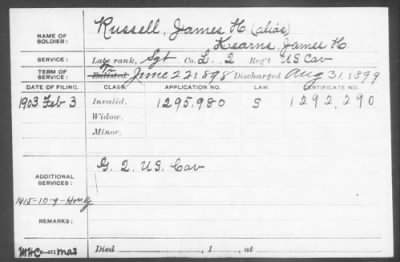 NAME OF SOLDIER: Russell, James H. (alias)
Kearns, James H.
SERVICE: Late rank, Sgt Co. L. 2 Reg't US Cav
TERM OF SERVICE: Enlisted June 22 1898 Discharged Aug 31. 1899
DATE OF FILING. CLASS. APPLICATION NO. LAW. CERTIFICATE NO.
1903 Feb 3 Invalid, 1295.980 S 1292,290
Widow,
Minor,
ADDITIONAL SERVICES: G. 2. US. Cav
REMARKS:
Died , 1 , at